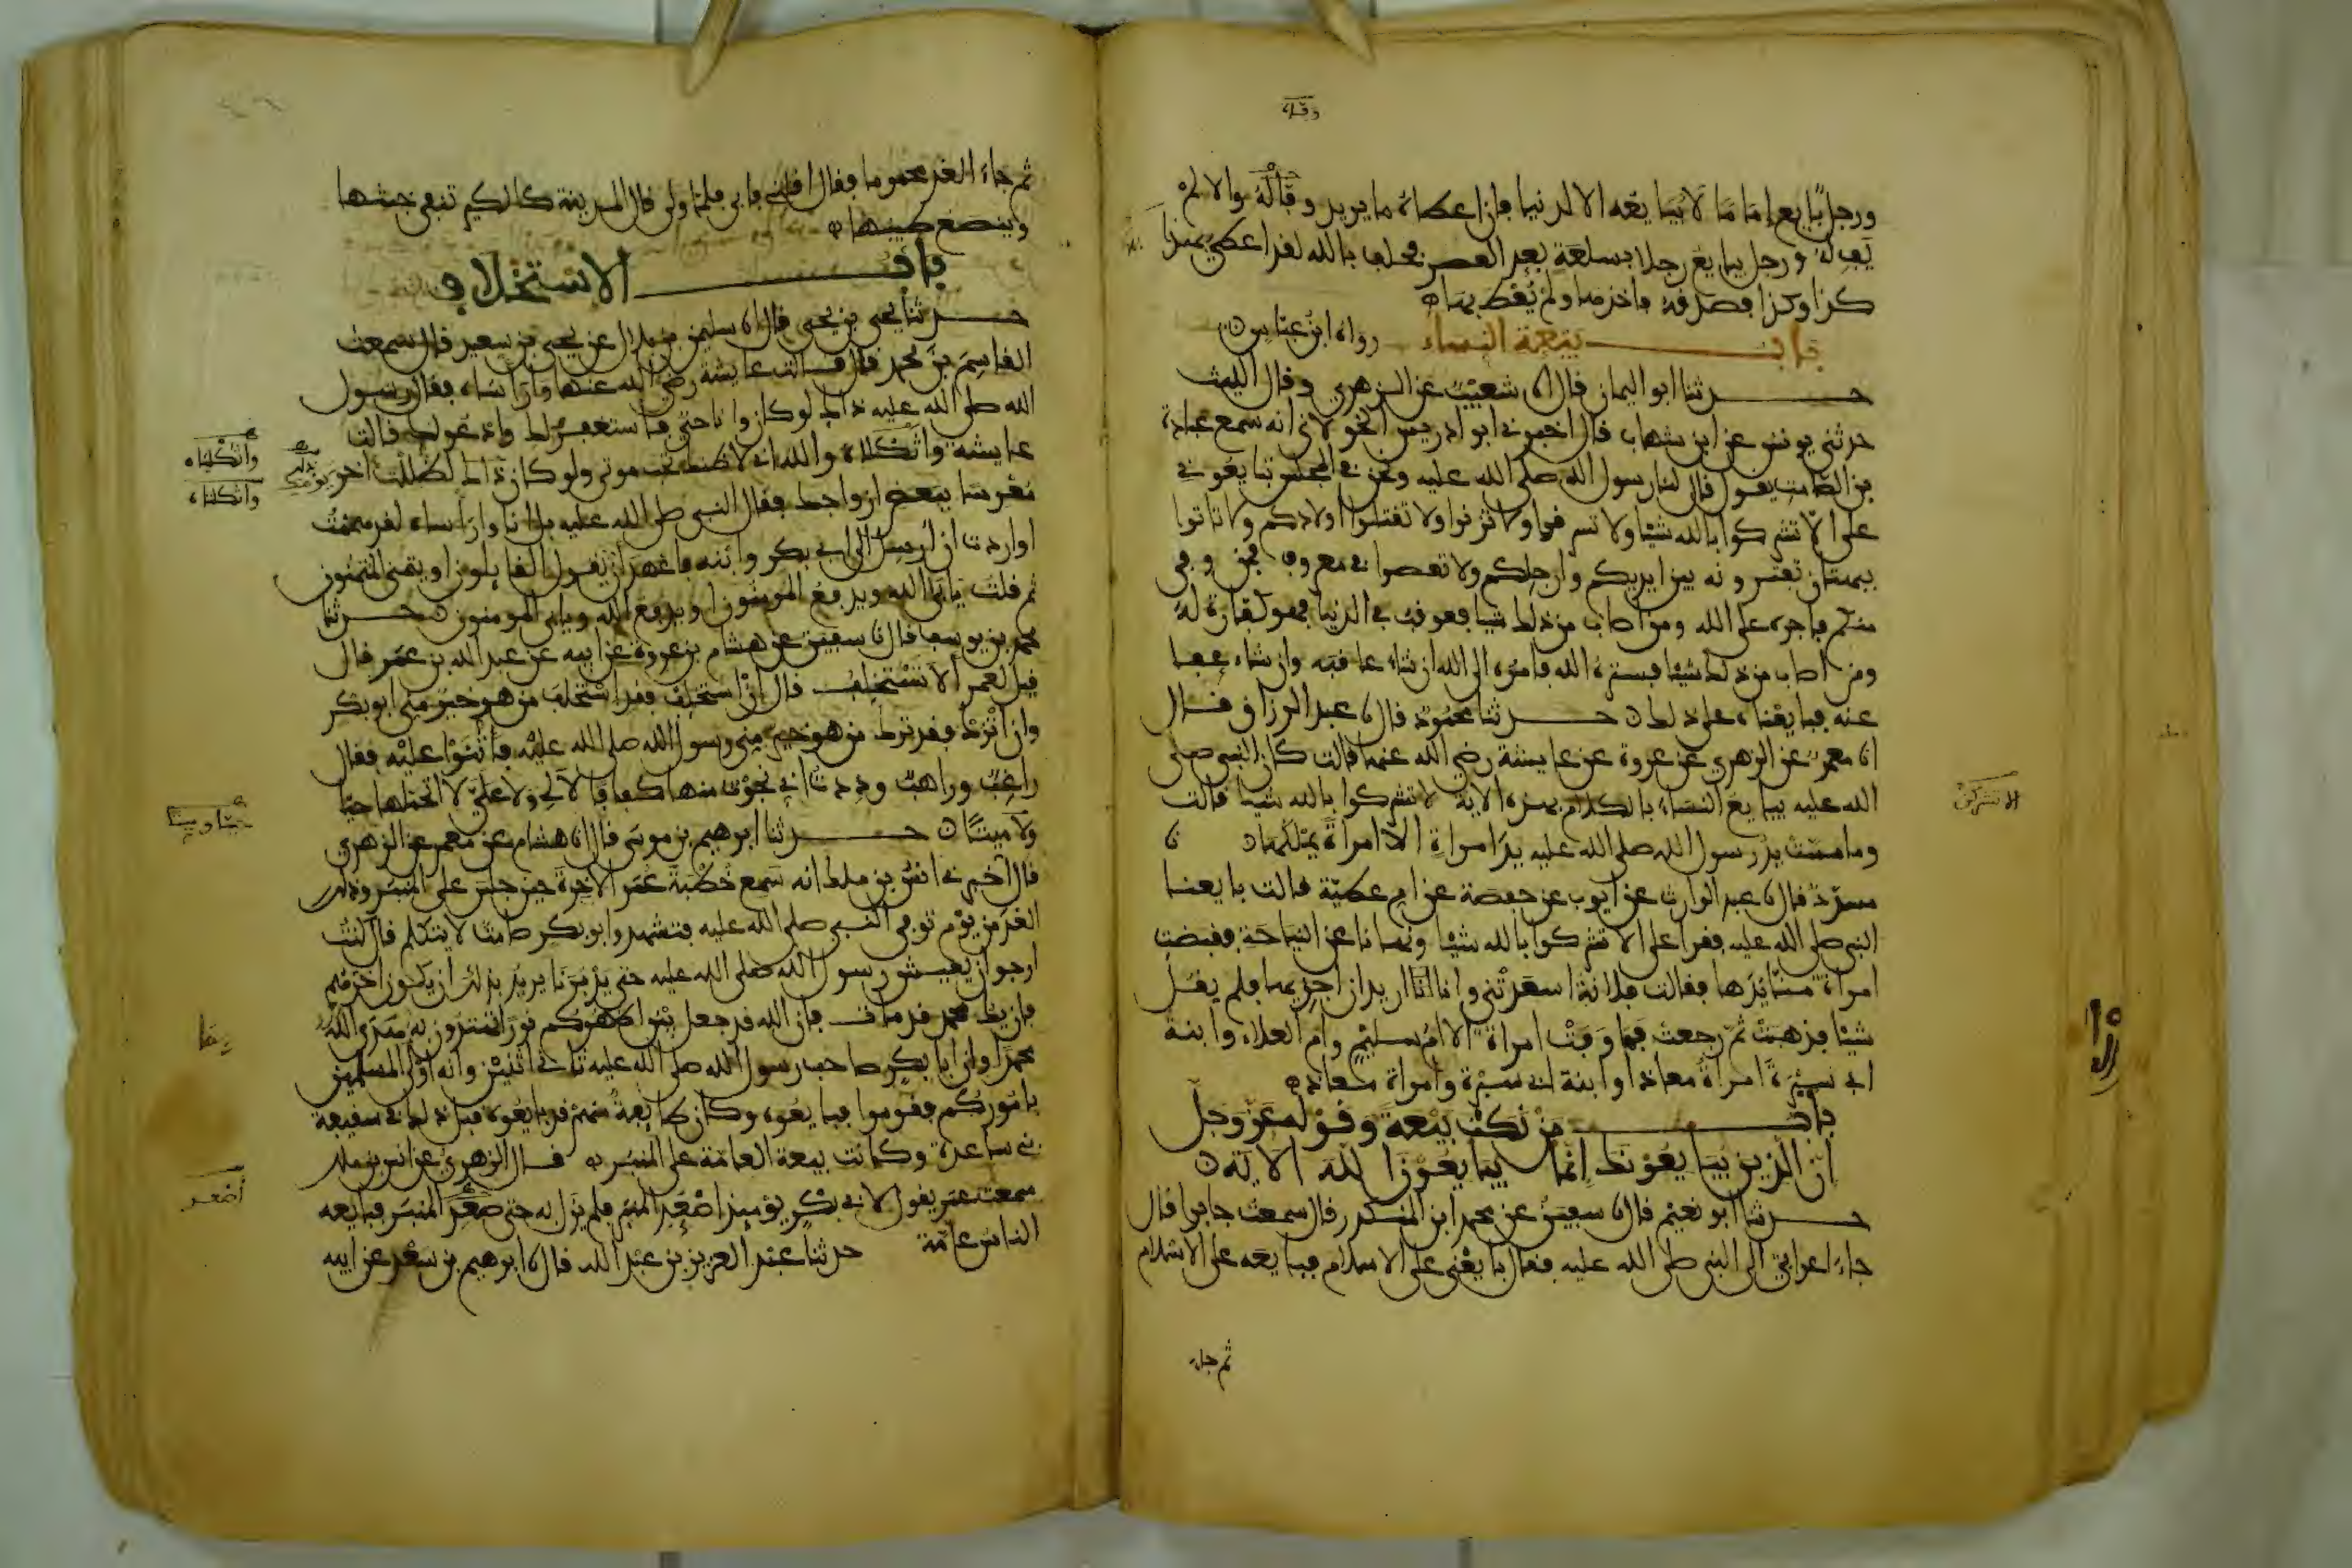 وقاله
ورجل بايع إماما لا يبايعه الا لدنيا فإن اعطاه ما يريد وفا له والا لم
يف له ورجل يبايع رجلا بسلعة بعد العصر فحلف بالله لقد اعطي بها
كذا وكذا فصدقه فاخذها ولم يعط بها
باب بيعة النساء رواه ابن عباس
حدثنا ابو اليمان قال انا شعيب عن الزهري وقال الليث
حدثني يونس عن ابن شهاب قال اخبرني ابو ادريس الخولاني انه سمع عبادة
بن الصامت يقول قال لنا رسول الله صلى الله عليه ونحن في المجلس تبايعوني
على الا تشركوا بالله شيئا ولا تسرقوا ولا تزنوا ولا تقتلوا اولادكم ولا تاتوا
ببهتان تفترونه بين ايديكم وارجلكم ولا تعصوا في معروف فمن وفى
منكم فاجره على الله ومن اصاب من ذلك شيا فعوقب في الدنيا فهو كفارة له
ومن اصاب من ذلك شيئا فستره الله فامره الى الله ان شاء عاقبه وان شاء عفا
عنه فبايعناه على ذلك حدثنا محمود قال نا عبد الرزاق قال
انا معمر عن الزهري عن عروة عن عايشة رضي الله عنها قالت كان النبي صلى
الله عليه يبايع النساء بالكلام بهذه الاية لا تشركوا بالله شيا قالت
الا تشركن
وما مست يد رسول الله صلى الله عليه يد امراة الا امراة يملكها نا
مسدد قال نا عبد الوارث عن ايوب عن حفصة عن ام عطية قالت بايعنا
النبي صلى الله عليه فقرا على الا تشركوا بالله شيئا ونهانا عن النياحة فقبضت
امراة منا يدها فقالت فلانة اسعدتني وانا اريد ان اجزيها فلم يقل
شيئا فذهبت ثم رجعت فما وفت امراة الا ام سليم وام العلاء وابنة
ابي سبرة امراة معاذ او ابنة ابي سبرة وامراة معاذ
باب من نكث بيعة وقوله عز وجل
ان الذين يبايعونك انما يبايعون الله الاية
حدثنا ابو نعيم قال نا سفين عن محمد ابن المنكدر قال سمعت جابرا قال
جاء اعرابي الى النبي صلى الله عليه فقال بايعني على الاسلام فبايعه على الاسلام
ثم جاء
ثم جاء الغد محموما فقال اقلني فابى فلما ولى قال المدينة كالكير تنفي خبثها
وينصع طيبها
باب الاستخلاف
حدثنا يحيى بن يحيى قال انا سليمن بن بلال عن يحيى بن سعيد قال سمعت
القاسم بن محمد قال قالت عايشة رضي الله عنها وارأساه فقال رسول
الله صلى الله عليه ذاك لو كان وانا حي فاستغفر لك وادعو لك قالت
عايشة واثكلاه والله اني لاظنك تحب موتي ولو كان ذاك لظللت اخر يومك
واثكلياه
واثكلتاه
معرسا ببعض ازواجك فقال النبي صلى الله عليه بل انا وارأساه لقد هممت
او اردت ان ارسل الى ابي بكر وابنه فاعهد ان يقول القايلون او يتمنى المتمنون
ثم قلت يابى الله ويدفع المومنون او يدفع الله ويابى المومنون حدثنا
محمد بن يوسف قال نا سفين عن هشام بن عروة عن ابيه عن عبد الله بن عمر قال
قيل لعمر الا تستخلف قال ان استخلف فقد استخلف من هو خير مني ابو بكر
وان اترك فقد ترك من هو خير مني رسول الله صلى الله عليه فاثنوا عليه فقال
راغب وراهب وددت اني نجوت منها كفافا لا لي ولا علي لا اتحملها حيا
حيا وميتا
ولا ميتا حدثنا ابرهيم بن موسى قال انا هشام عن معمر عن الزهري
قال اخبرني انس بن ملك انه سمع خطبة عمر الاخرة حين جلس على المنبر وذلك
الغد من يوم توفي النبي صلى الله عليه فتشهد وابو بكر صامت لا يتكلم قال كنت
ارجو ان يعيش رسول الله صلى الله عليه حتى يدبرنا يريد بذلك ان يكون اخرهم
فان يك محمد قد مات فان الله قد جعل بين اظهركم نورا تهتدون به هدى الله
محمدا وان ابا بكر صاحب رسول الله صلى الله عليه ثاني اثنين وانه اولى المسلمين
باموركم فقوموا فبايعوه وكان طايفة منهم قد بايعوه قبل ذلك في سقيفة
بني ساعدة وكانت بيعة العامة على المنبر قال الزهري عن انس بن ملك
سمعت عمر يقول لابي بكر يوميذ اصعد المنبر فلم يزل به حتى صعد المنبر فبايعه
الناس عامة حدثنا عبد العزيز بن عبد الله قال نا ابرهيم بن سعد عن ابيه